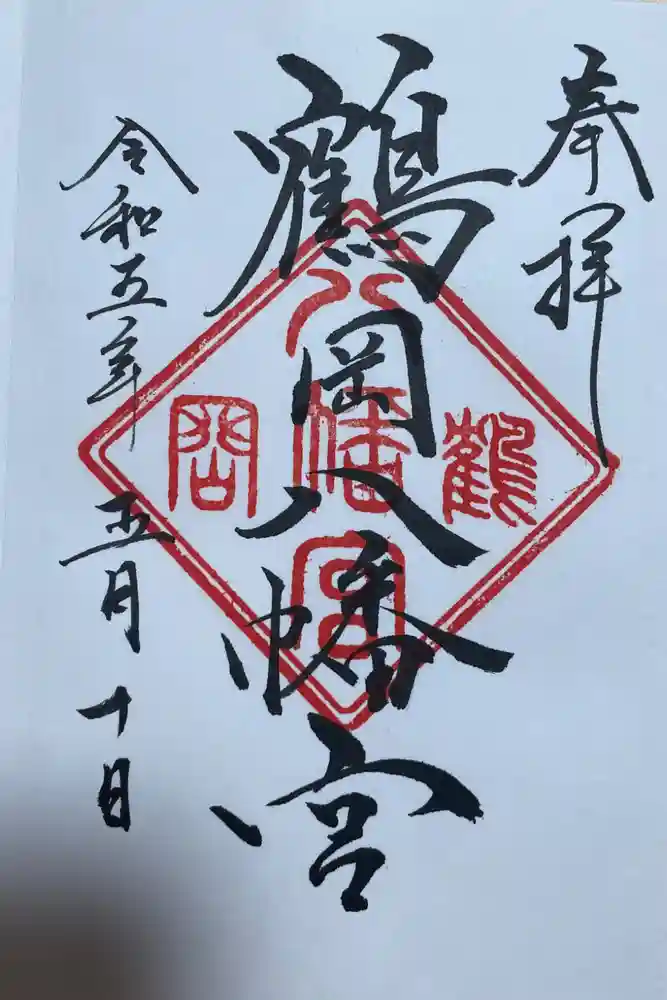 奉拝
鶴岡八幡宮
令和五年五月十日
鶴
八幡宮
岡